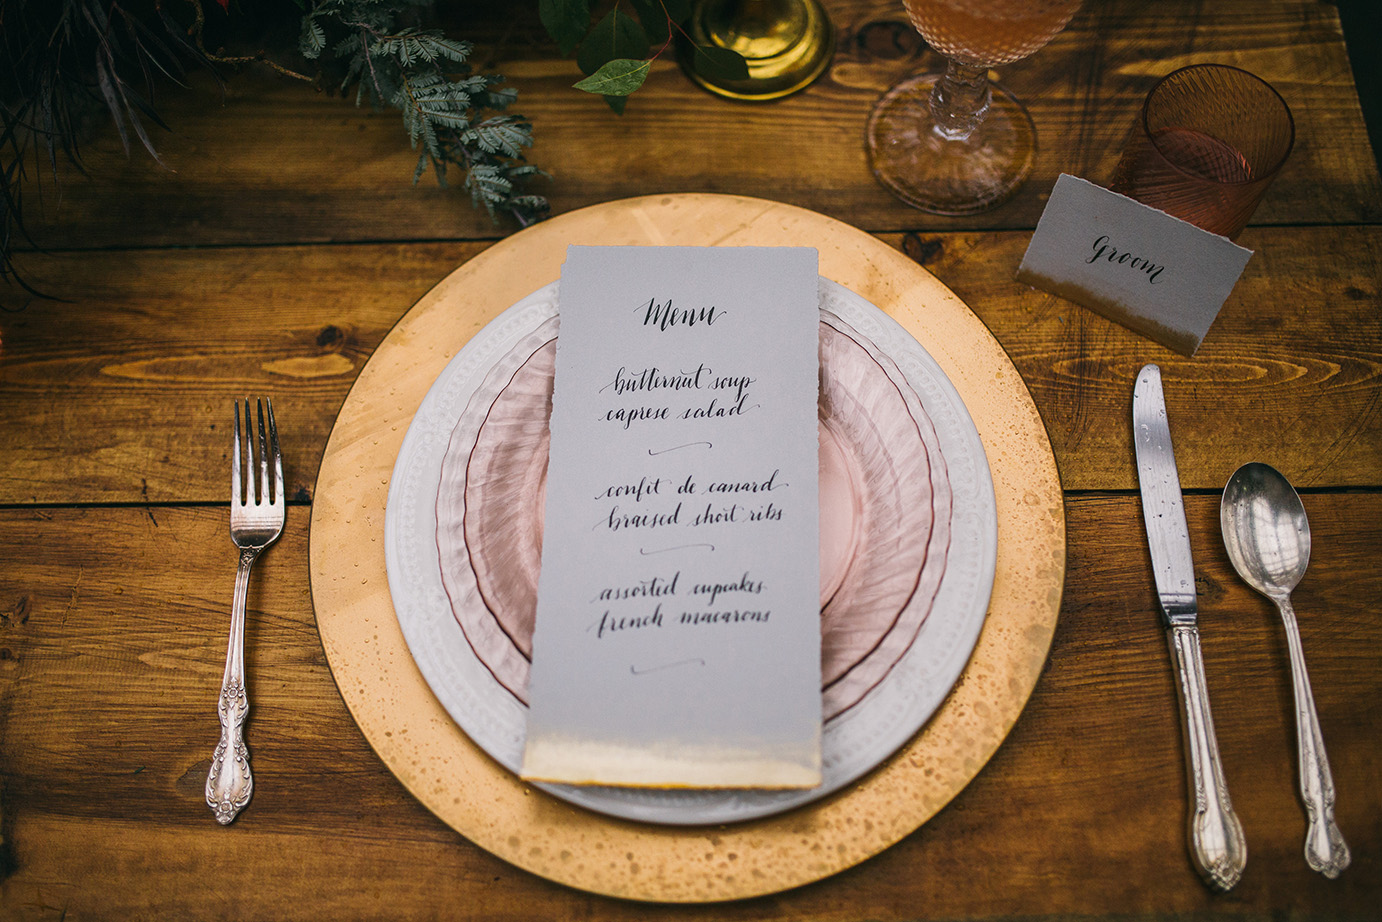 Menu
butternut soup
caprese salad
confit de canard
braised short ribs
assorted cupcakes
french macarons
Groom